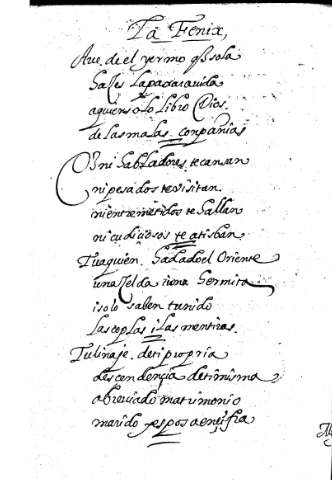 La Fenix,
Ave de el yermo q sola
haçes la paxara vida
a quien solo libro Dios
de las malas conpañias
q ni habladores te cansan
ni pesados te visitan
ni entremetidos te hallan
ni cudiçiosos te atisban
Tu a quien ha dado el Oriente
una çelda i una hermita
i solo saben tu nido
las coplas i las mentiras.
Tu linaje de ti propria
desçendençia de ti misma
abreviado matrimonio
marido y esposa en çifra